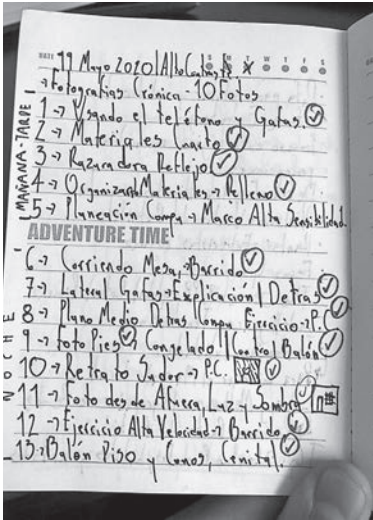 DATE 19 Mayo 2020 | Alto Contraste S M T W T F S
→ Fotografias Crónica - 10 Fotos
MAÑANA-TARDE
1 → Usando el teléfono y Gafas.
2 → Materiales
3 → Razuradora Reflejo
4 → Organizando Materiales → Relleno
5 → Planeación Compu → Marco Alta Sensibilidad.
ADVENTURE TIME
NOCHE
6 → Corriendo Mesa, → Barrido
7 → Lateral Gafas → Explicación | Detras
8 → Plano Medio Detras Compu Ejercicio → P.C.
9 → Foto Pies Congelado | Control Balón
10 → Retrato Sudor → P.C.
11 → Foto desde Afuera, Luz y Sombra
12 → Ejercicio Alta Velocidad → Barrido
13 → Balón Piso y Conos, Cenital.